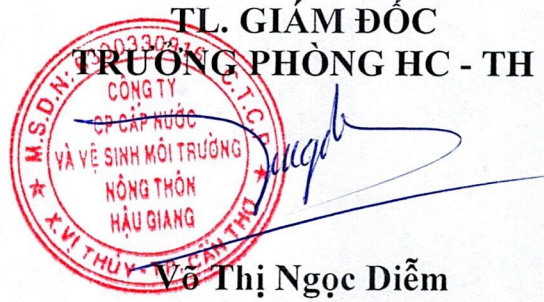 TL. GIÁM ĐỐC
TRƯỞNG PHÒNG HC - TH
M.S.D.N: C.T.C.P
CÔNG TY
CP CẤP NƯỚC
VÀ VỆ SINH MÔI TRƯỜNG
NÔNG THÔN
HẬU GIANG
X.VỊ THỦY - TP. CẦN THƠ
Võ Thị Ngọc Diễm